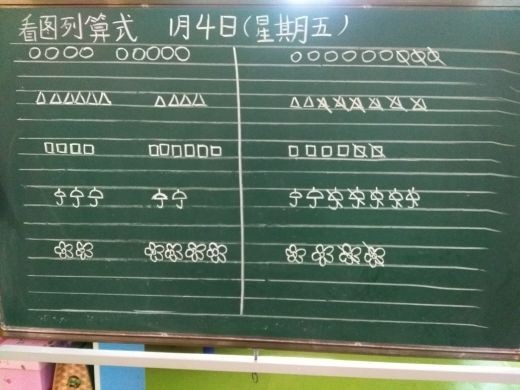 看图列算式 1月4日(星期五)